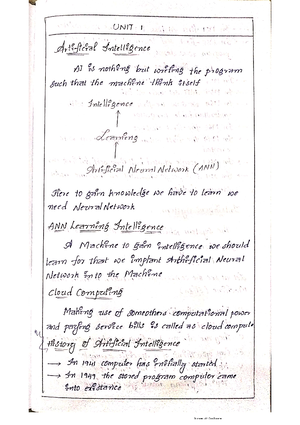 UNIT 1
Artificial Intelligence
AI is nothing but writing the program
such that the machine think itself
Intelligence
↑
Learning
↑
Artificial Neural Network (ANN)
Here to gain knowledge we have to learn we
need Neural Network
ANN Learning Intelligence
A Machine to gain intelligence we should
learn for that we implant Arthificial Neural
Network in to the Machine
Cloud Computing
Making use of someothers computational power
and paying service bills is called as cloud compute
History of Artificial Intelligence
→ In 1941 computer has initially started
→ In 1949 the stored program computer came
into existance